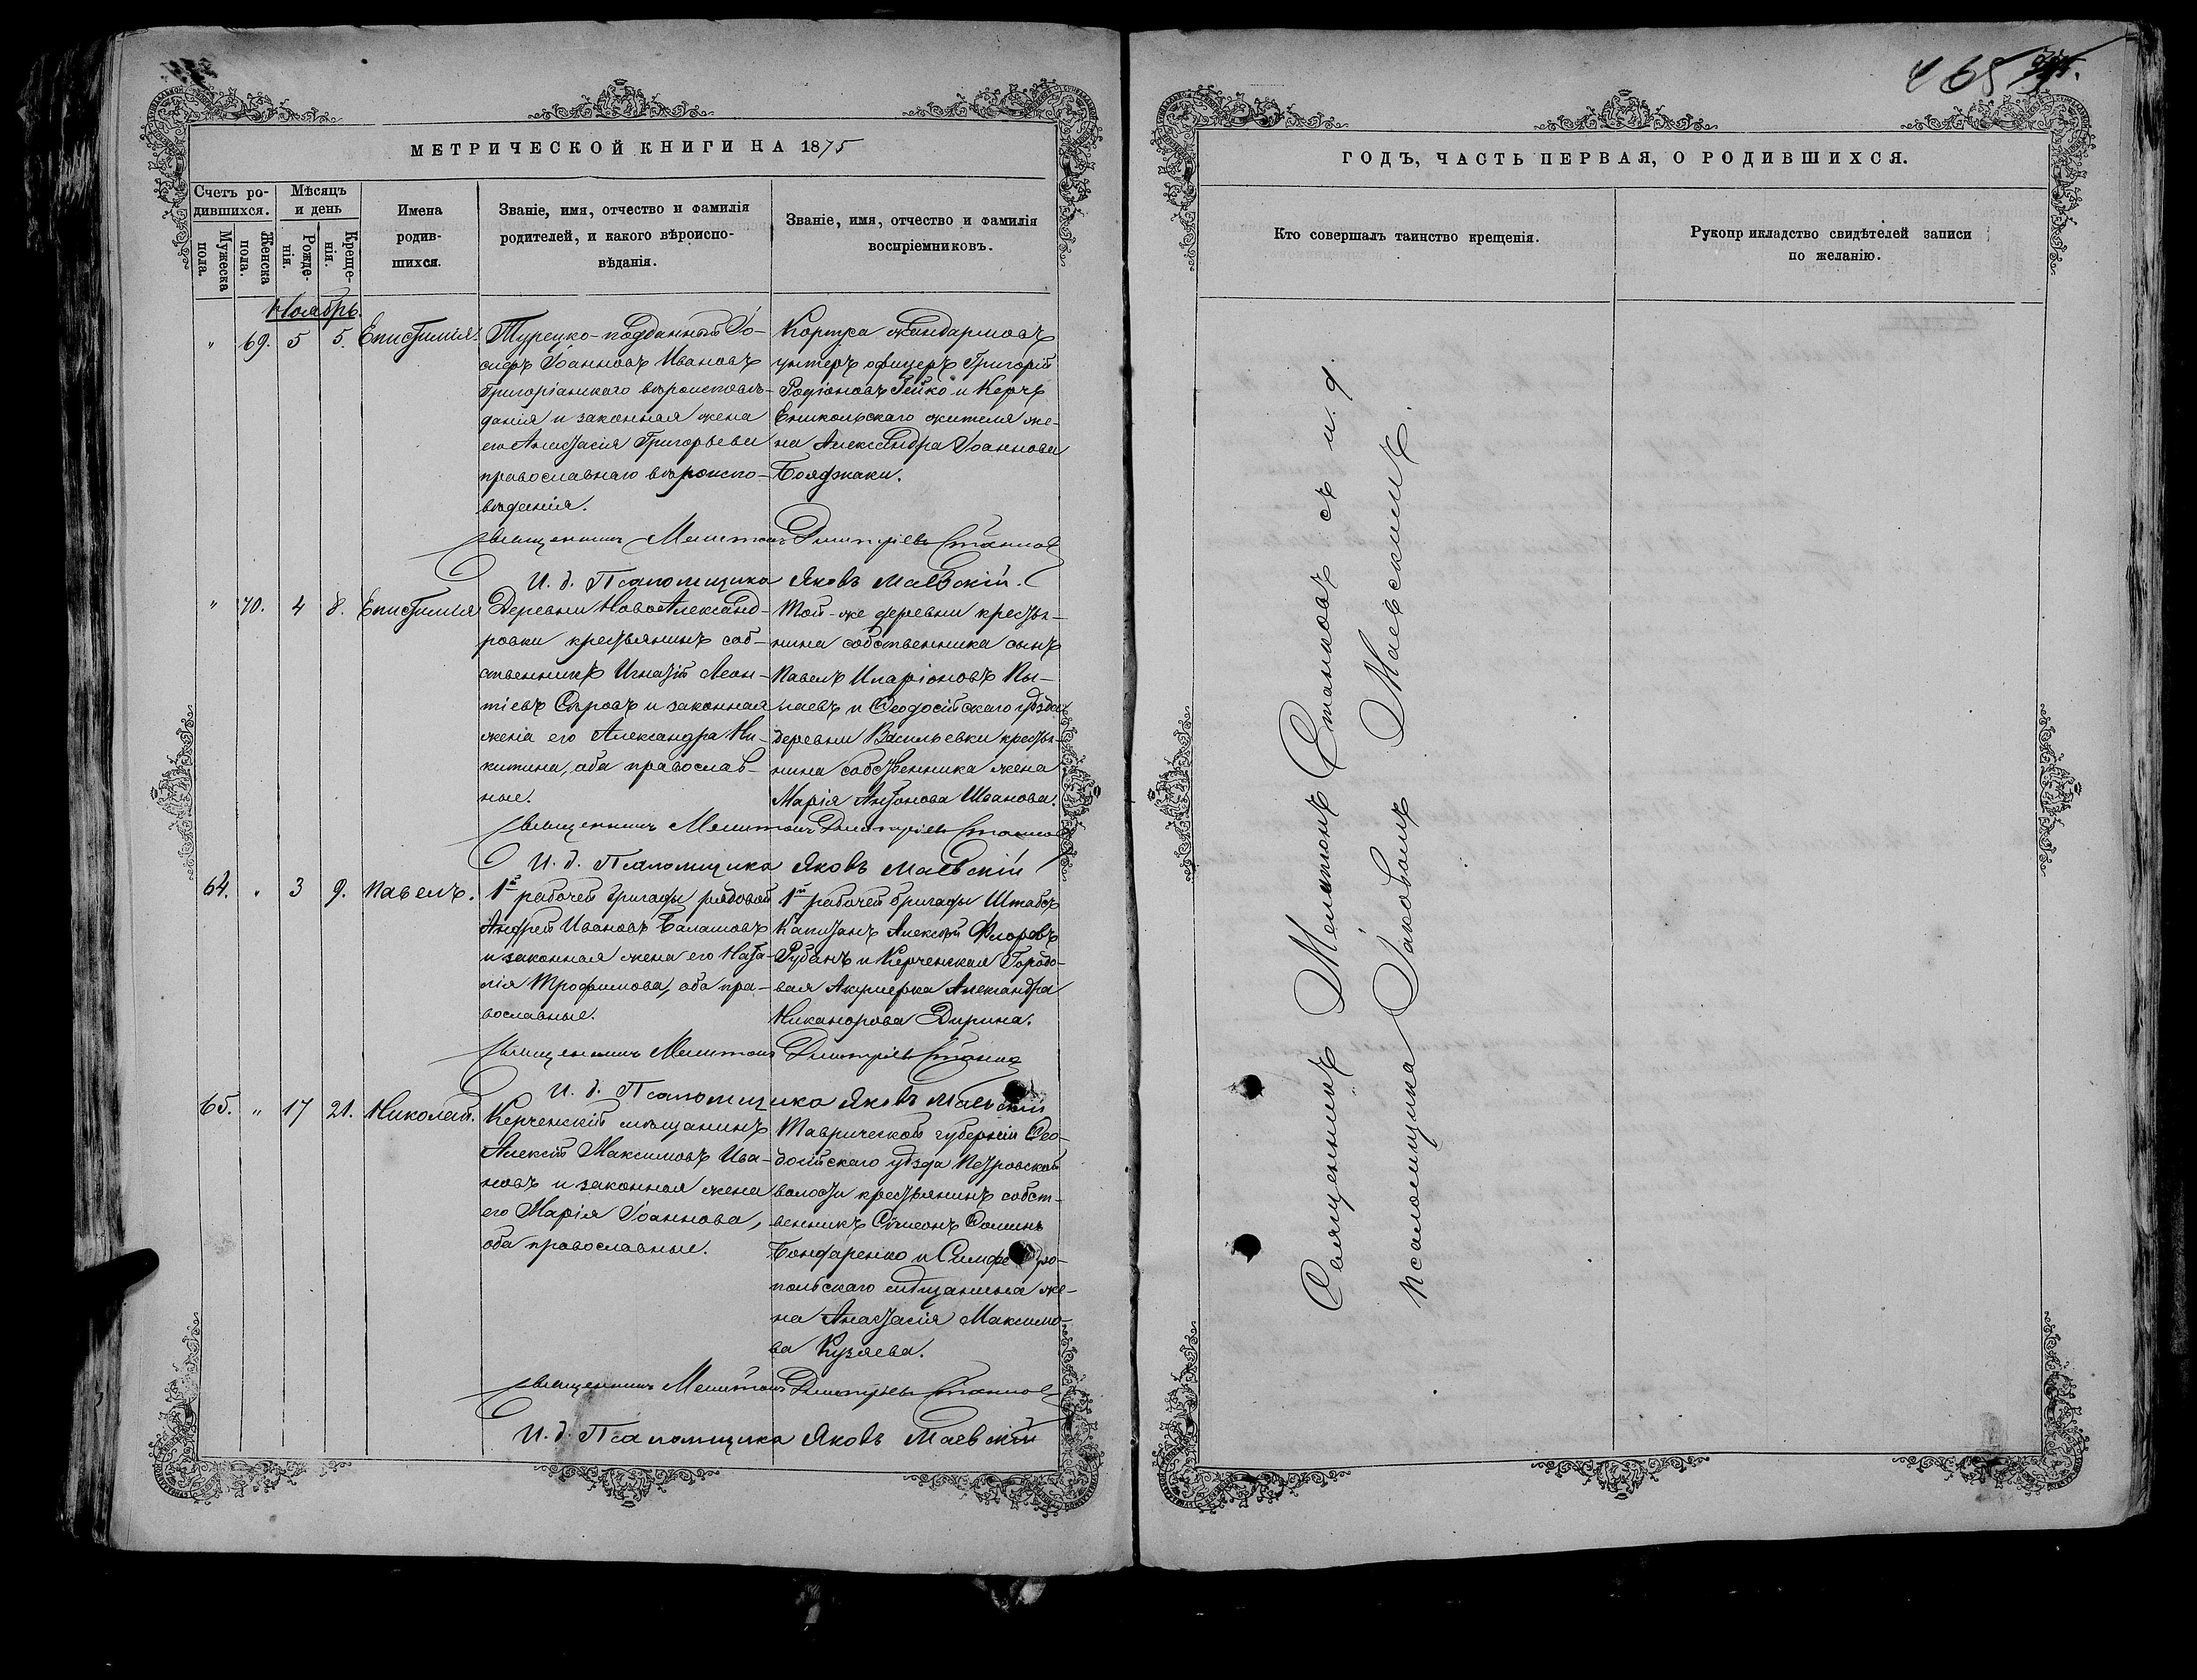 465
МЕТРИЧЕСКОЙ КНИГИ НА 1875
Счетъ ро-
дившихся.
Мужеска
пола.
Женска
пола.
Мѣсяцъ
и день
Рожде-
нія.
Креще-
нія.
Имена
родив-
шихся.
Званіе, имя, отчество и фамилія
родителей, и какого вѣроиспо-
вѣданія.
Званіе, имя, отчество и фамилія
воспріемниковъ.
Ноябрь.
" 69. 5 5. Епистимія.
Турецко-подданный Іо-
сифъ Іоанновъ Ивановъ
Григоріанскаго вѣроисповѣ-
данія и законная жена
его Анастасія Григорьева
православнаго вѣроиспо-
вѣданія.
Корпуса жандармовъ
унтеръ офицеръ Григорій
Родіоновъ Гейко и Керчь
Еникольскаго жителя же-
на Александра Іоаннова
Бояджаки.
Священникъ Мелитонъ Дмитріевъ Станков
И. д. Псаломщика Яковъ Маевскій.
" 70. 4 8. Епистимія
Деревни НовоАлександ-
ровки крестьянинъ соб-
ственникъ Игнатій Леон-
тіевъ Сѣровъ и законная
жена его Александра Ни-
китина, оба православ-
ные.
Той-же деревни крестья-
нина собственника сынъ
Павелъ Иларіоновъ Пы-
лаевъ и Ѳеодосійскаго уѣзда
деревни Васильевки крестья-
нина собственника жена
Марія Антонова Иванова.
Священникъ Мелитонъ Дмитріевъ Станков
И. д. Псаломщика Яковъ Маевскій
64. " 3 9. Павелъ.
1й рабочей бригады рядовой
Андрей Ивановъ Балашовъ
и законная жена его Ната-
лія Трофимова, оба пра-
вославные.
1й рабочей бригады Штабсъ
Капитанъ Алексѣй Флоровъ
Рубанъ и Керченская Городо-
вая Акушерка Александра
Никанорова Дирина.
Священникъ Мелитонъ Дмитріевъ Станков
И. д. Псаломщика Яковъ Маевскій
65. " 17 21. Николай.
Керченскій мѣщанинъ
Алексѣй Максимовъ Ива-
новъ и законная жена
его Марія Іоаннова,
оба православные.
Таврической губерніи Ѳео-
досійскаго уѣзда Петровской
волости крестьянинъ собст-
венникъ Сѵмеонъ Ѳоминъ
Бондаренко и Симферо-
польскаго мѣщанина же-
на Анастасія Максимо-
ва Кузяева.
Священникъ Мелитонъ Дмитріевъ Станков
И. д. Псаломщика Яковъ Маевскій
ГОДЪ, ЧАСТЬ ПЕРВАЯ, О РОДИВШИХСЯ.
Кто совершалъ таинство крещенія.
Рукоприкладство свидѣтелей записи
по желанію.
Священникъ Мелитонъ Станковъ съ и. д.
Псаломщика Іаковомъ Маевскимъ.